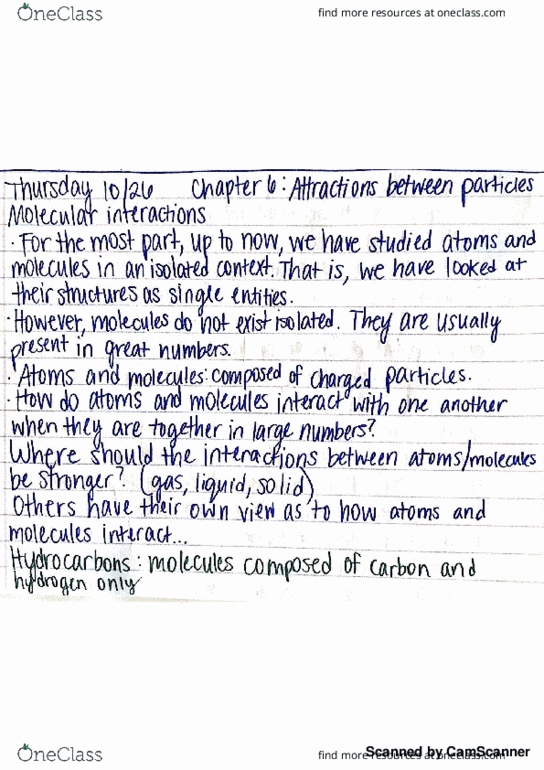 OneClass find more resources at oneclass.com
Thursday 10/26 Chapter 6: Attractions between particles
Molecular interactions
· For the most part, up to now, we have studied atoms and
molecules in an isolated context. That is, we have looked at
their structures as single entities.
· However, molecules do not exist isolated. They are usually
present in great numbers.
· Atoms and molecules: composed of charged particles.
· How do atoms and molecules interact with one another
when they are together in large numbers?
Where should the interactions between atoms/molecules
be stronger? (gas, liquid, solid)
Others have their own view as to how atoms and
molecules interact...
Hydrocarbons: molecules composed of carbon and
hydrogen only
OneClass find more resources at oneclass.com
Scanned by CamScanner